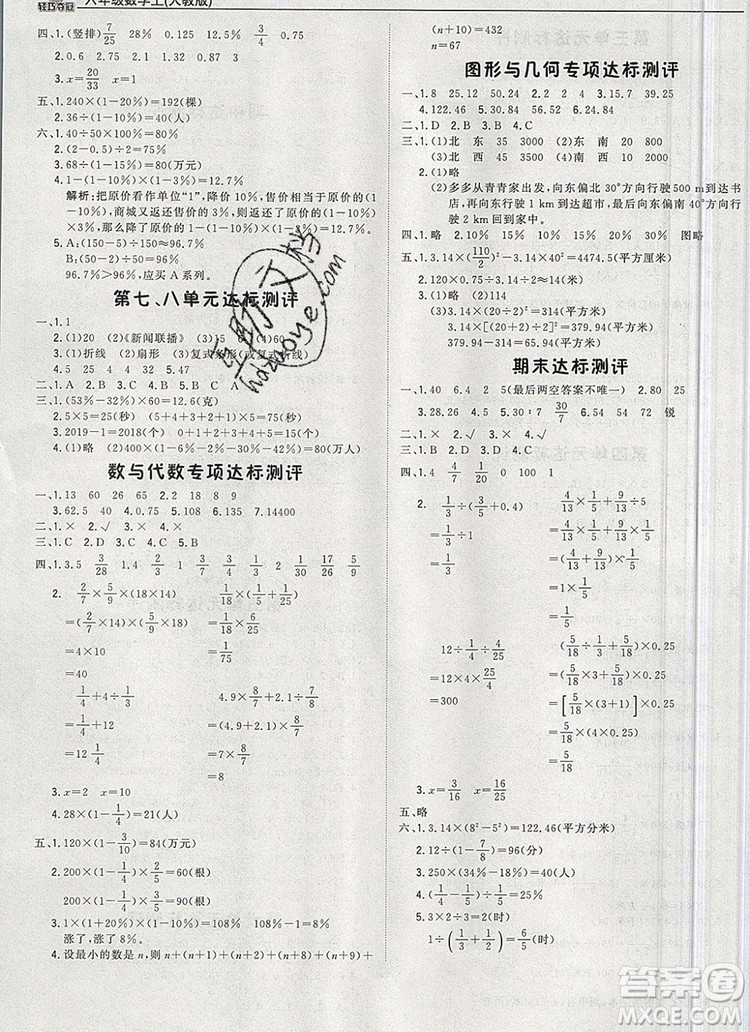 轻巧夺冠
六年级数学上(人教版)
四、1.(竖排) 7/25 0.8 0.125 0.25 3/4 28%
2.
3.x=20/33 x=2
五、1.240×(1-20%)=192(棵)
2.36÷(1-10%)=40(人)
六、1.40÷50×100%=80%
2.(2-0.5)÷2=75%
3.68÷(1-10%-5%)=80(万元)
4.1-(1-10%)×(1-10%)=19%
解析:把原价看作单位“1”,降价 10%,售价相当于原价的(1
-10%),商城又返还售价的 10%,则返还了原价的(1-10%)
×10%,那么降价了原价的 1-(1-10%)×(1-10%)=19%。
5.A:(150-5)÷150×100%≈96.7%
B:(50-2)÷50×100%=96%
96.7%>96%,应买 A 系列。
第七、八单元达标测评
一、1.1
2.(1)20 (2)《新闻联播》 (3)15 (4)60
3.(1)折线 (2)扇形 (3)复式条形(或复式折线)
4.5 5.15 6.22
二、1.A 2.A 3.B 4.C 5.A
三、1.(53%-32%)×60=12.6(克)
2.5×5=25(秒) (5+4+3+2+1)×5=75(秒)
3.2019-1=2018(个) 0+1+2+3+4+5=15(个)
4.(1)略 (2)40÷(1-20%-28%-2%)=80(万人)
数与代数专项达标测评
一、1.13 60 26 65 2.12 18 8 9
3.62.5 40 4.75 5.108 6.135 7.14400
二、1.× 2.√ 3.× 4.×
三、1.C 2.C 3.A 4.D 5.B
四、1.3.5 3/28 1.4 3/4 1 3/4 1/3 3/25
2. 2/7×5/9×(18×14) 1/15÷(1/5+1/1/25)
=(2/7×14)×(5/9×18) =1/15×1/5
=4×10 =1/75
=40
1/4÷1/9+4÷1/3 4.9×8/7+2.1÷7/8
=1/4+12 =(4.9+2.1)×8/7
=12 1/4 =7×8/7
=8
3.x=2 x=10
4.28×(1-1/4)=21(人)
五、1.120×(1-3/10)=84(万元)
2.200×(1-1/10-1/5)×3/7=60(根)
200×(1-1/10-1/5)-60=80(根)
3.1×(1+20%)×(1-10%)=108% 108%-1=8%
涨了,涨了 8%。
4.设最小的数是 n,n+(n+1)+(n+2)+(n+8)+(n+9)+
(n+10)=432
n=67
图形与几何专项达标测评
一、1.8 25.12 50.24 2.2 2 4 3.15 39.25
4.122.46 5.6.28 6.24.84
二、1.D 2.B 3.B 4.C
三、1.(1)北 东 35 3000 (2)东 南 20 800
(3)北 西 45 3500
2.(1)略
(2)多多从青青家出发,向东偏北 30°方向行驶 500 m 到达书
店,再向东行驶 1 km 到达超市,最后向东偏南 40°方向行
驶 2 km 回到家中。
四、1.略 2.10% 15% 20% 20% 图略
五、1.3.14×(110/2)²-3.14×40²=4474.75(平方厘米)
2.(1)略
(2)3.14×(12²-10²)÷2=69.08(平方米)
3.3.14×11²=379.94(平方米)
3.14×[11²-(11-2)²]=125.6(平方米)
379.94-125.6=254.34(平方米)
期末达标测评
一、1.40 6.4 2 5(最后两空答案不唯一) 2.80 25
3.28.26 4.5 5.30∶7 30/7 6.72 锐
二、1.× 2.√ 3.× 4.× 5.×
三、1.C 2.A 3.D 4.A 5.B
四、1.4 4/7 1/20 0 100 1
2. 1/3÷(2/3+1/3) 4/13×1/5+9/13÷5
=1/3÷1 =4/13×1/5+9/13×1/5
=1/3 =(4/13+9/13)×1/5
=1×1/5
=1/5
12÷1/4÷4/25 (5/18÷1/3+5/18)×0.25
=12×4×25/4 =(5/18×3+5/18)×0.25
=300 =[5/18×(3+1)]×0.25
=5/18×(4×0.25)
=5/18
3.x=3/16 x=16/25
五、略
六、1.3.14×(8²-5²)=122.46(平方分米)
2.12÷(1-7/8)=96(分)
3.250×(34%-18%)=40(人)
4.(1/4-1/5)÷1/5=25%
5.3×2÷(1+1/5)=5(时)
1÷(1/3+1/3×1/5)=5/2(时)